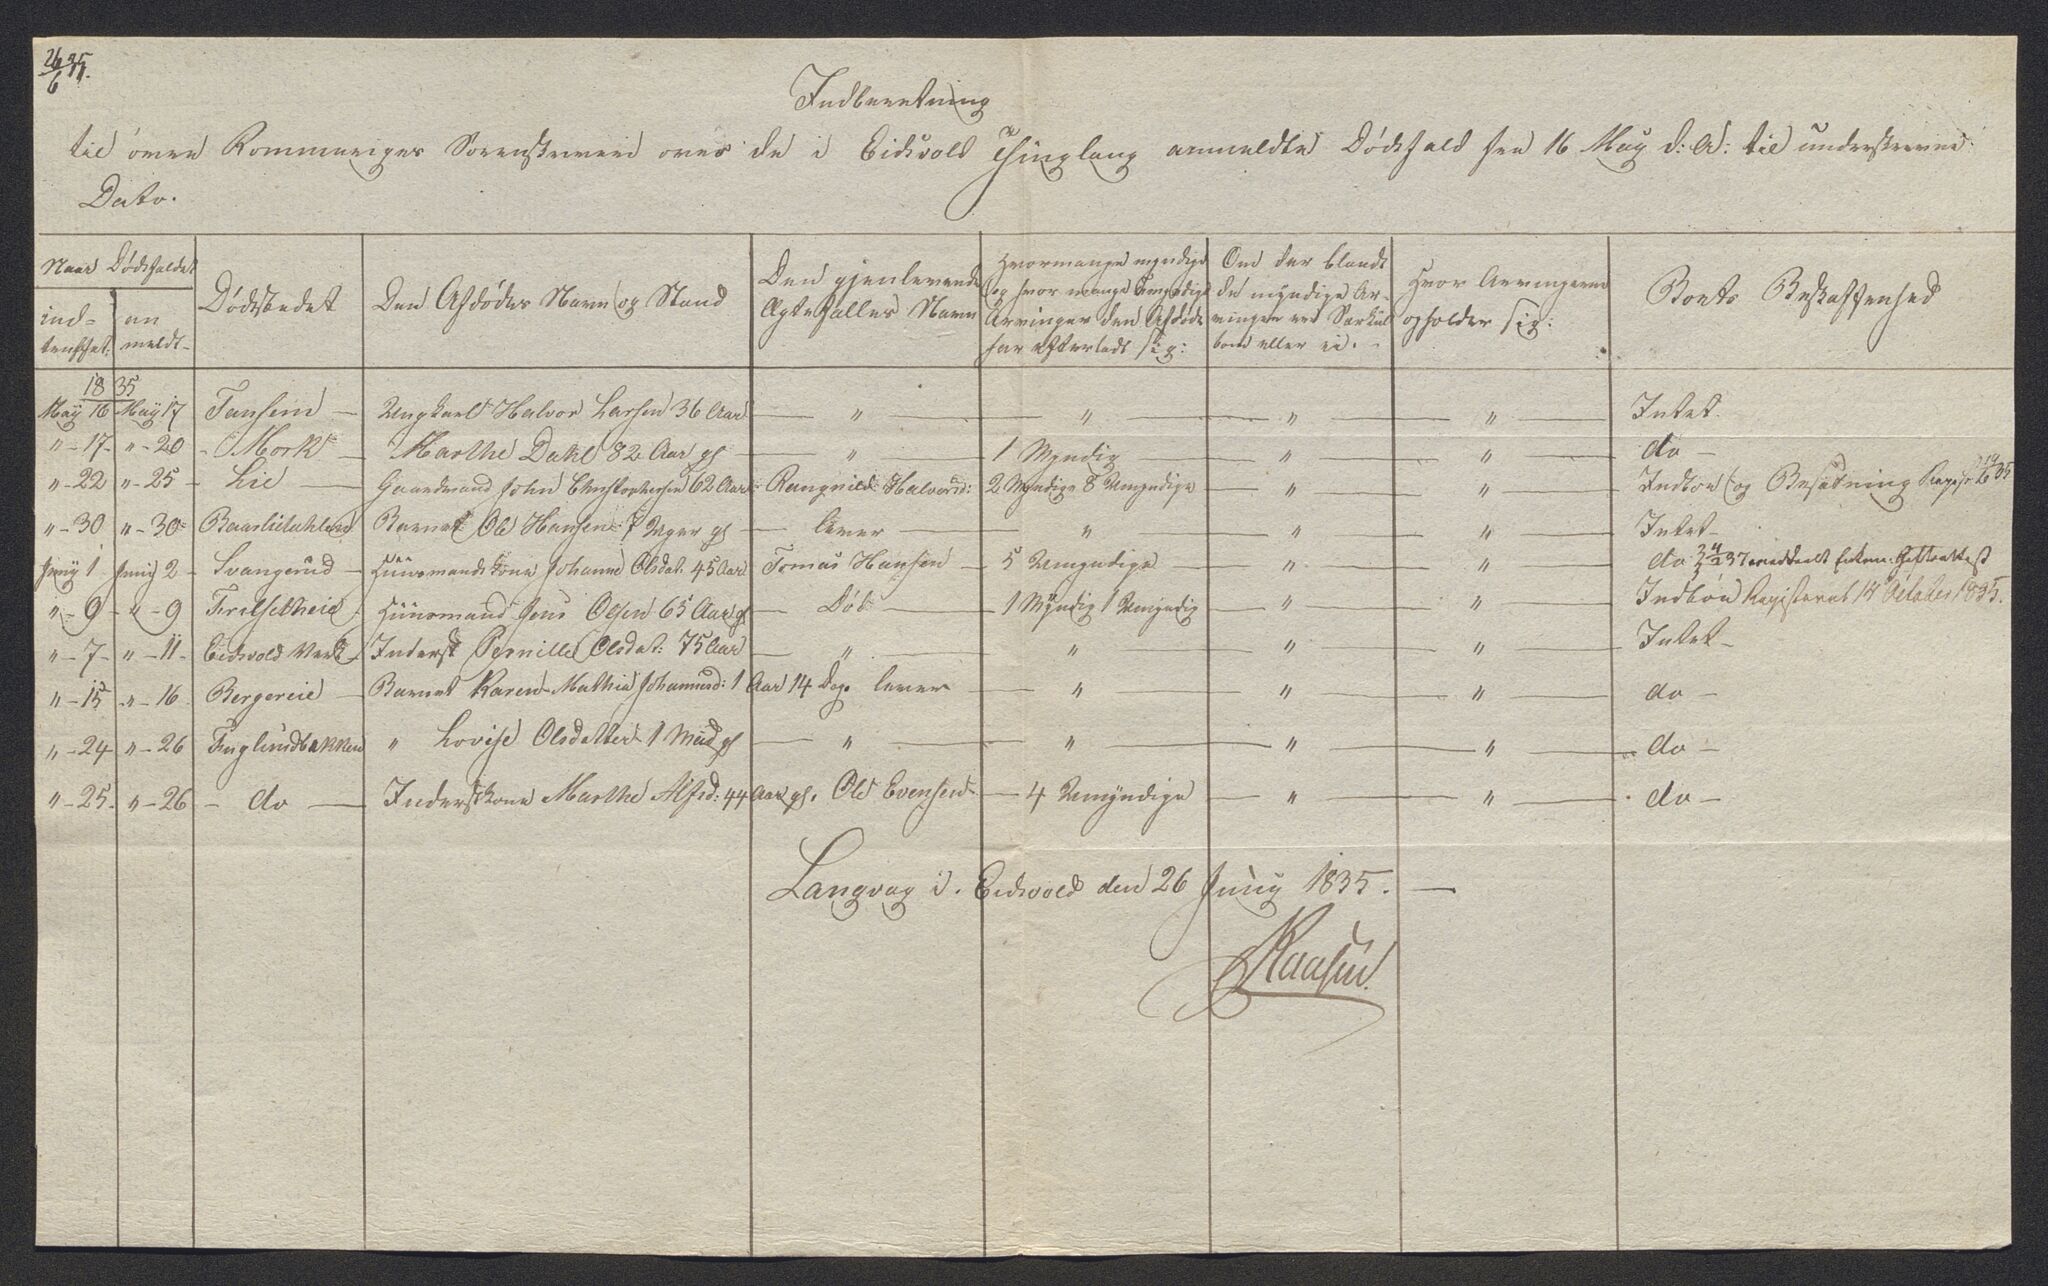 26/6 35.
Indberetning
til øvre Rommeriges Sorenskriveri over de i Eidsvold Thinglaug anmeldte Dødsfald fra 16 May d: A: til underskrevne
Dato.
Naar Dødsfaldet
ind-
truffet:
an
meldt-
Dødstedet
Den Afdødes Navn og Stand
Den gjenlevende
Ægtefælles Navn
Hvormange myndige
og hvor mange Umyndige
Arvinger den Afdøde
har efterladt sig:
Om der blandt
de myndige Ar-
vinger ved Særkul
born eller ei. -
Hvor Arvingerne
opholder sig:
Boets Beskaffenhed
1835
May 16 May 17 Tansem — Ungkarl Halvor Larsen 36 Aar — " — " — " — " — Intet.
" - 17 - " - 20 - Mork — Marthe Dahl 82 Aar gl — " — 1 Myndig — " — " — do -
" - 22 " - 25 - Lie — Gaardmand John Christophersen 62 Aar Rangnild Halvorsd: 2 Myndige 8 Umyndige — " — " — Indboe og Besætning
" - 30 " - 30 Barnet Ole Hansen 7 Uger gl — lever — " — " — " — Intet -
Juny 1 Juny 2 - Svangerud - Huusmandskone Johanne Olsdat: 45 Aar Tomas Hansen — 5 Umyndige — " — " — do
" - 9 - " - 9 Huusmand Jens Olsen 65 Aar gl — Død — 1 Myndig 1 Umyndig — " — " — Indboe Registeret 14 October 1835.
" - 7 - " - 11 - Eidsvold Værk Inderst Pernille Olsdat: 75 Aar — " — " — " — " — Intet -
" - 15 " - 16 Bergereie — Barnet Karen Mathia Johannesd: 1 Aar 14 Dage lever — " — " — " — do -
" - 24 " - 26 Fuglundbakken " Lovise Olsdatter 1 Md gl — " — " — " — " — do -
" - 25 - " - 26 - do — Inderstkone Marthe Alfsd: 44 Aar gl. Ole Evensen — 4 Umyndige — " — " — do -
Langvag i Eidsvold den 26 Juny 1835. —
Kaasen